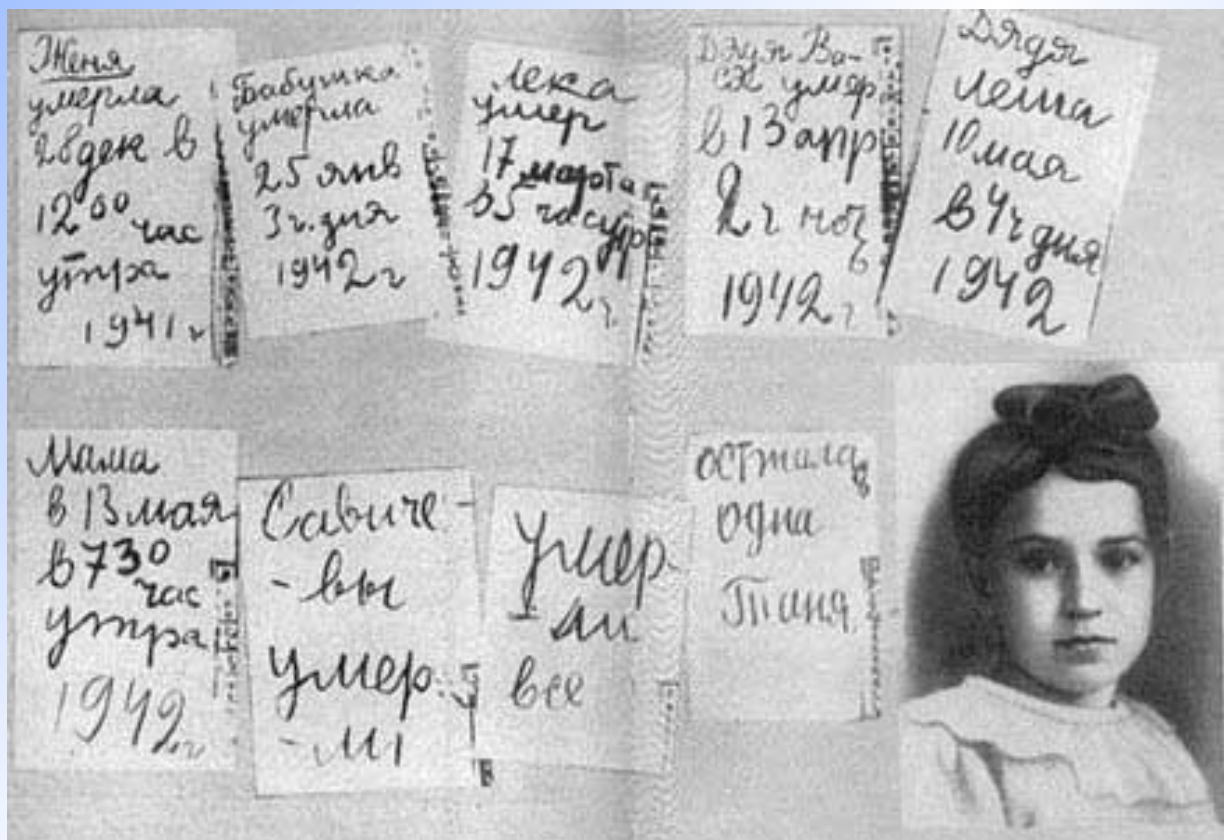 Женя
умерла
28 дек в
12 00 час
утра
1941 г
Бабушка
умерла
25 янв
3 ч. дня
1942 г
Лека
умер
17 марта
в 5 час утр
1942 г.
Дядя Ва-
ся умер
в 13 апр
2 ч ноч
ь
1942 г
Дядя
Леша
10 мая
в 4 ч дня
1942
Мама
в 13 мая
в 7 30
час
утра
1942 г
Савиче-
-вы
умер-
-ли
умер-
-ли
все
осталась
одна
Таня